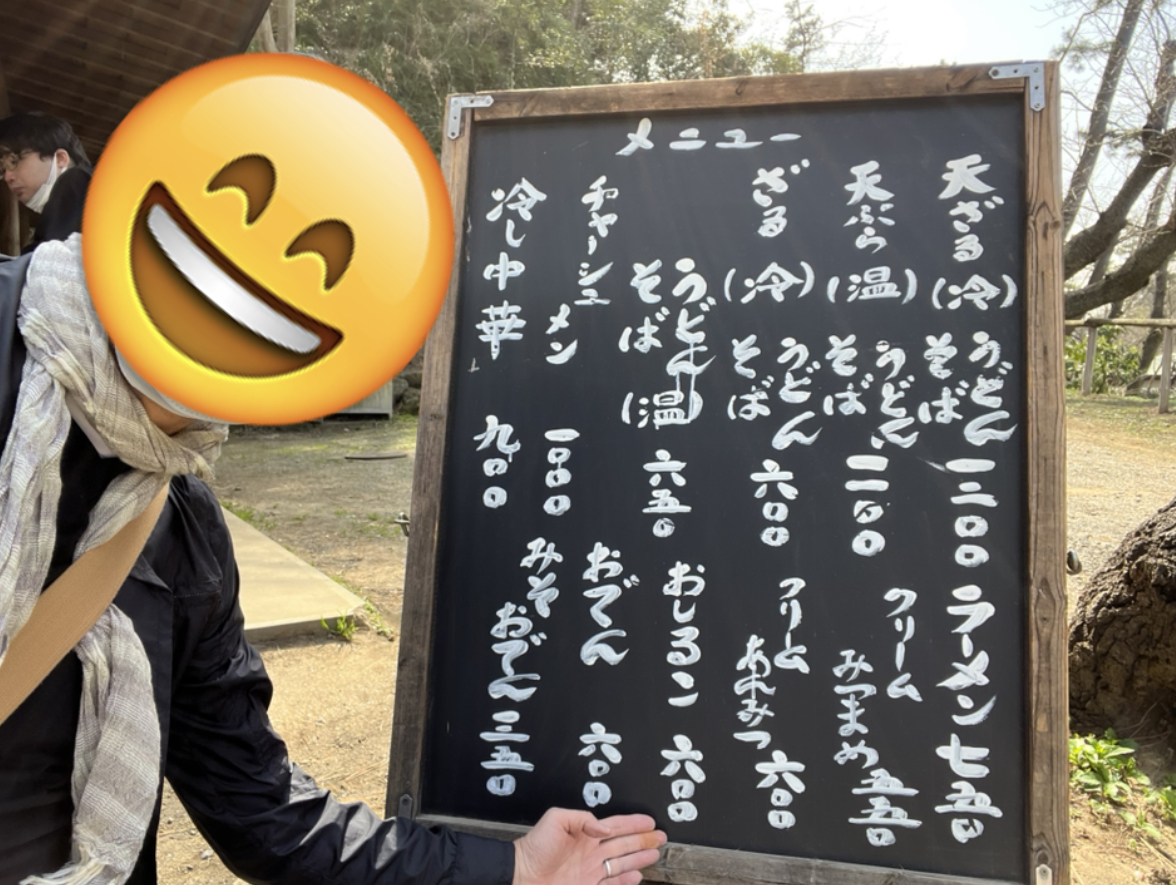 メニュー
天ざる(冷)うどんそば 一二〇〇
天ぷら(温)うどんそば 一一〇〇
ざる(冷)うどんそば 六〇〇
うどんそば(温) 六五〇
チャーシューメン 一〇〇〇
冷し中華 九〇〇
ラーメン 七五〇
クリームみつまめ 五五〇
クリームあんみつ 六〇〇
おしるこ 六〇〇
おでん 六〇〇
みそおでん 三五〇